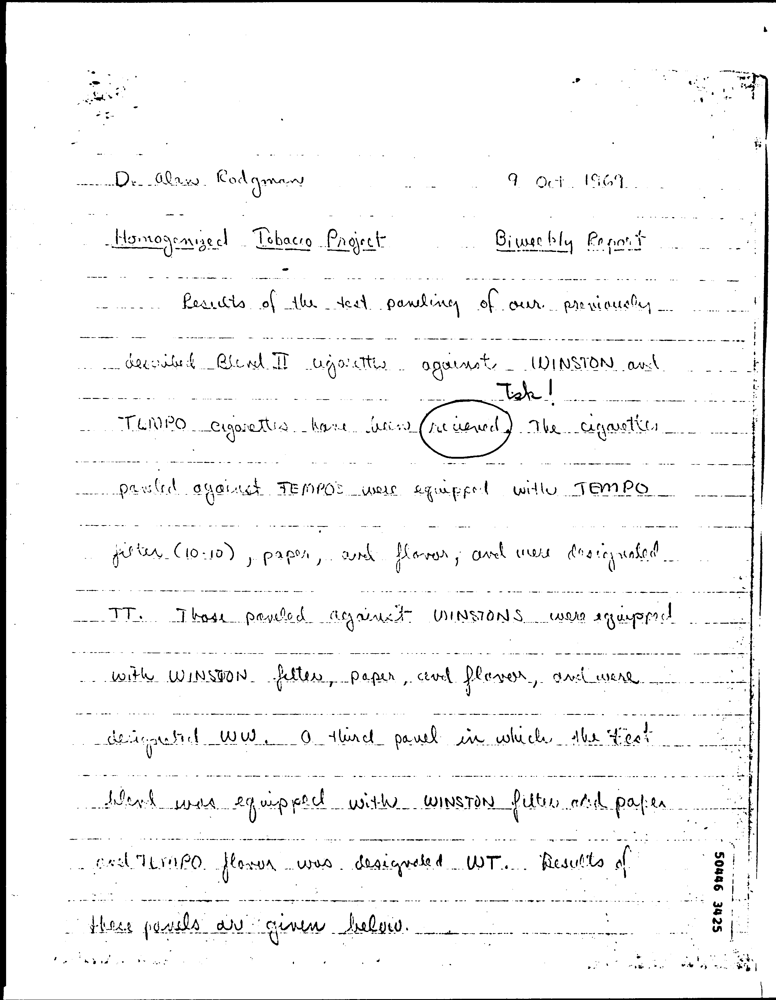 Dr. Alan Rodgman 9 Oct 1969
Homogenized Tobacco Project Biweekly Report
Results of the test paneling of our previously
described Blend II cigarettes against WINSTON and
Tsk!
TEMPO cigarettes have been recieved. The cigarettes
paneled against TEMPO's were equipped with TEMPO
filter (10:10), paper, and flavor, and were designated
TT. Those paneled against WINSTONS were equipped
with WINSTON filter, paper, and flavor, and were
designated WW. A third panel in which the test
blend was equipped with WINSTON filter and paper
and TEMPO flavor was designated WT. Results of
these panels are given below.
50446 3425